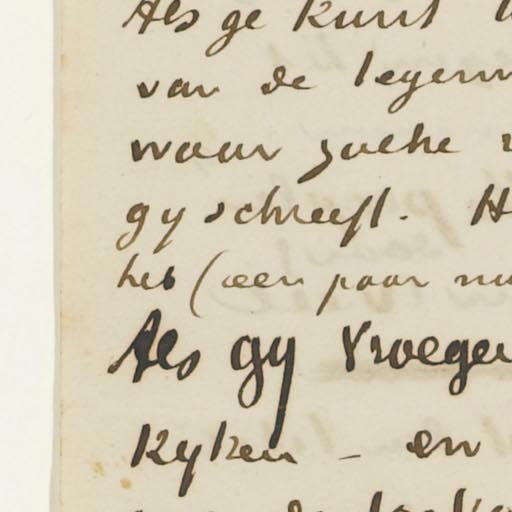 Als ge kunt
van de
waar zulke
gy schreeft. H
heb (een paar
Als gy vroeger
Kyken – en